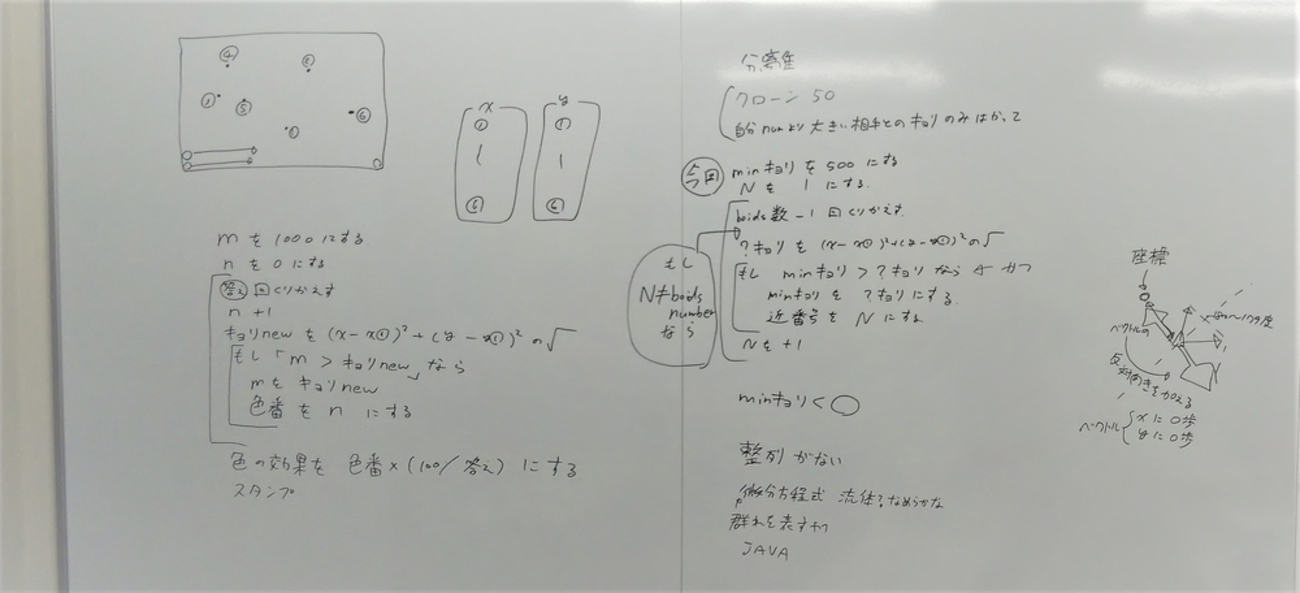 ④
②
①
⑤
⑥
⓪
x
y
①
①
⑥
⑥
mを1000にする
nを0にする
答え回くりかえす
n+1
キョリnewを(x-x①)²+(y-x①)²の√
もし「m>キョリnew」なら
mをキョリnew
色番をnにする
色の効果を 色番×(100/答え)にする
スタンプ
分離
クローン 50
自分numより大きい相手とのキョリのみはかって
今回
minキョリを500にする
Nを1にする.
boids数-1回くりかえす.
?キョリを(x-x①)²+(y-x①)²の√
もし minキョリ>?キョリなら かつ
minキョリを?キョリにする.
近番号をNにする
Nを+1
もし
N≠boids
number
なら
minキョリ<◯
整列がない
微分方程式 流体?なめらかな
群れを表すやつ
JAVA
座標
ベクトルの
反対向きをかえる
ベクトル
xに0歩
yに0歩